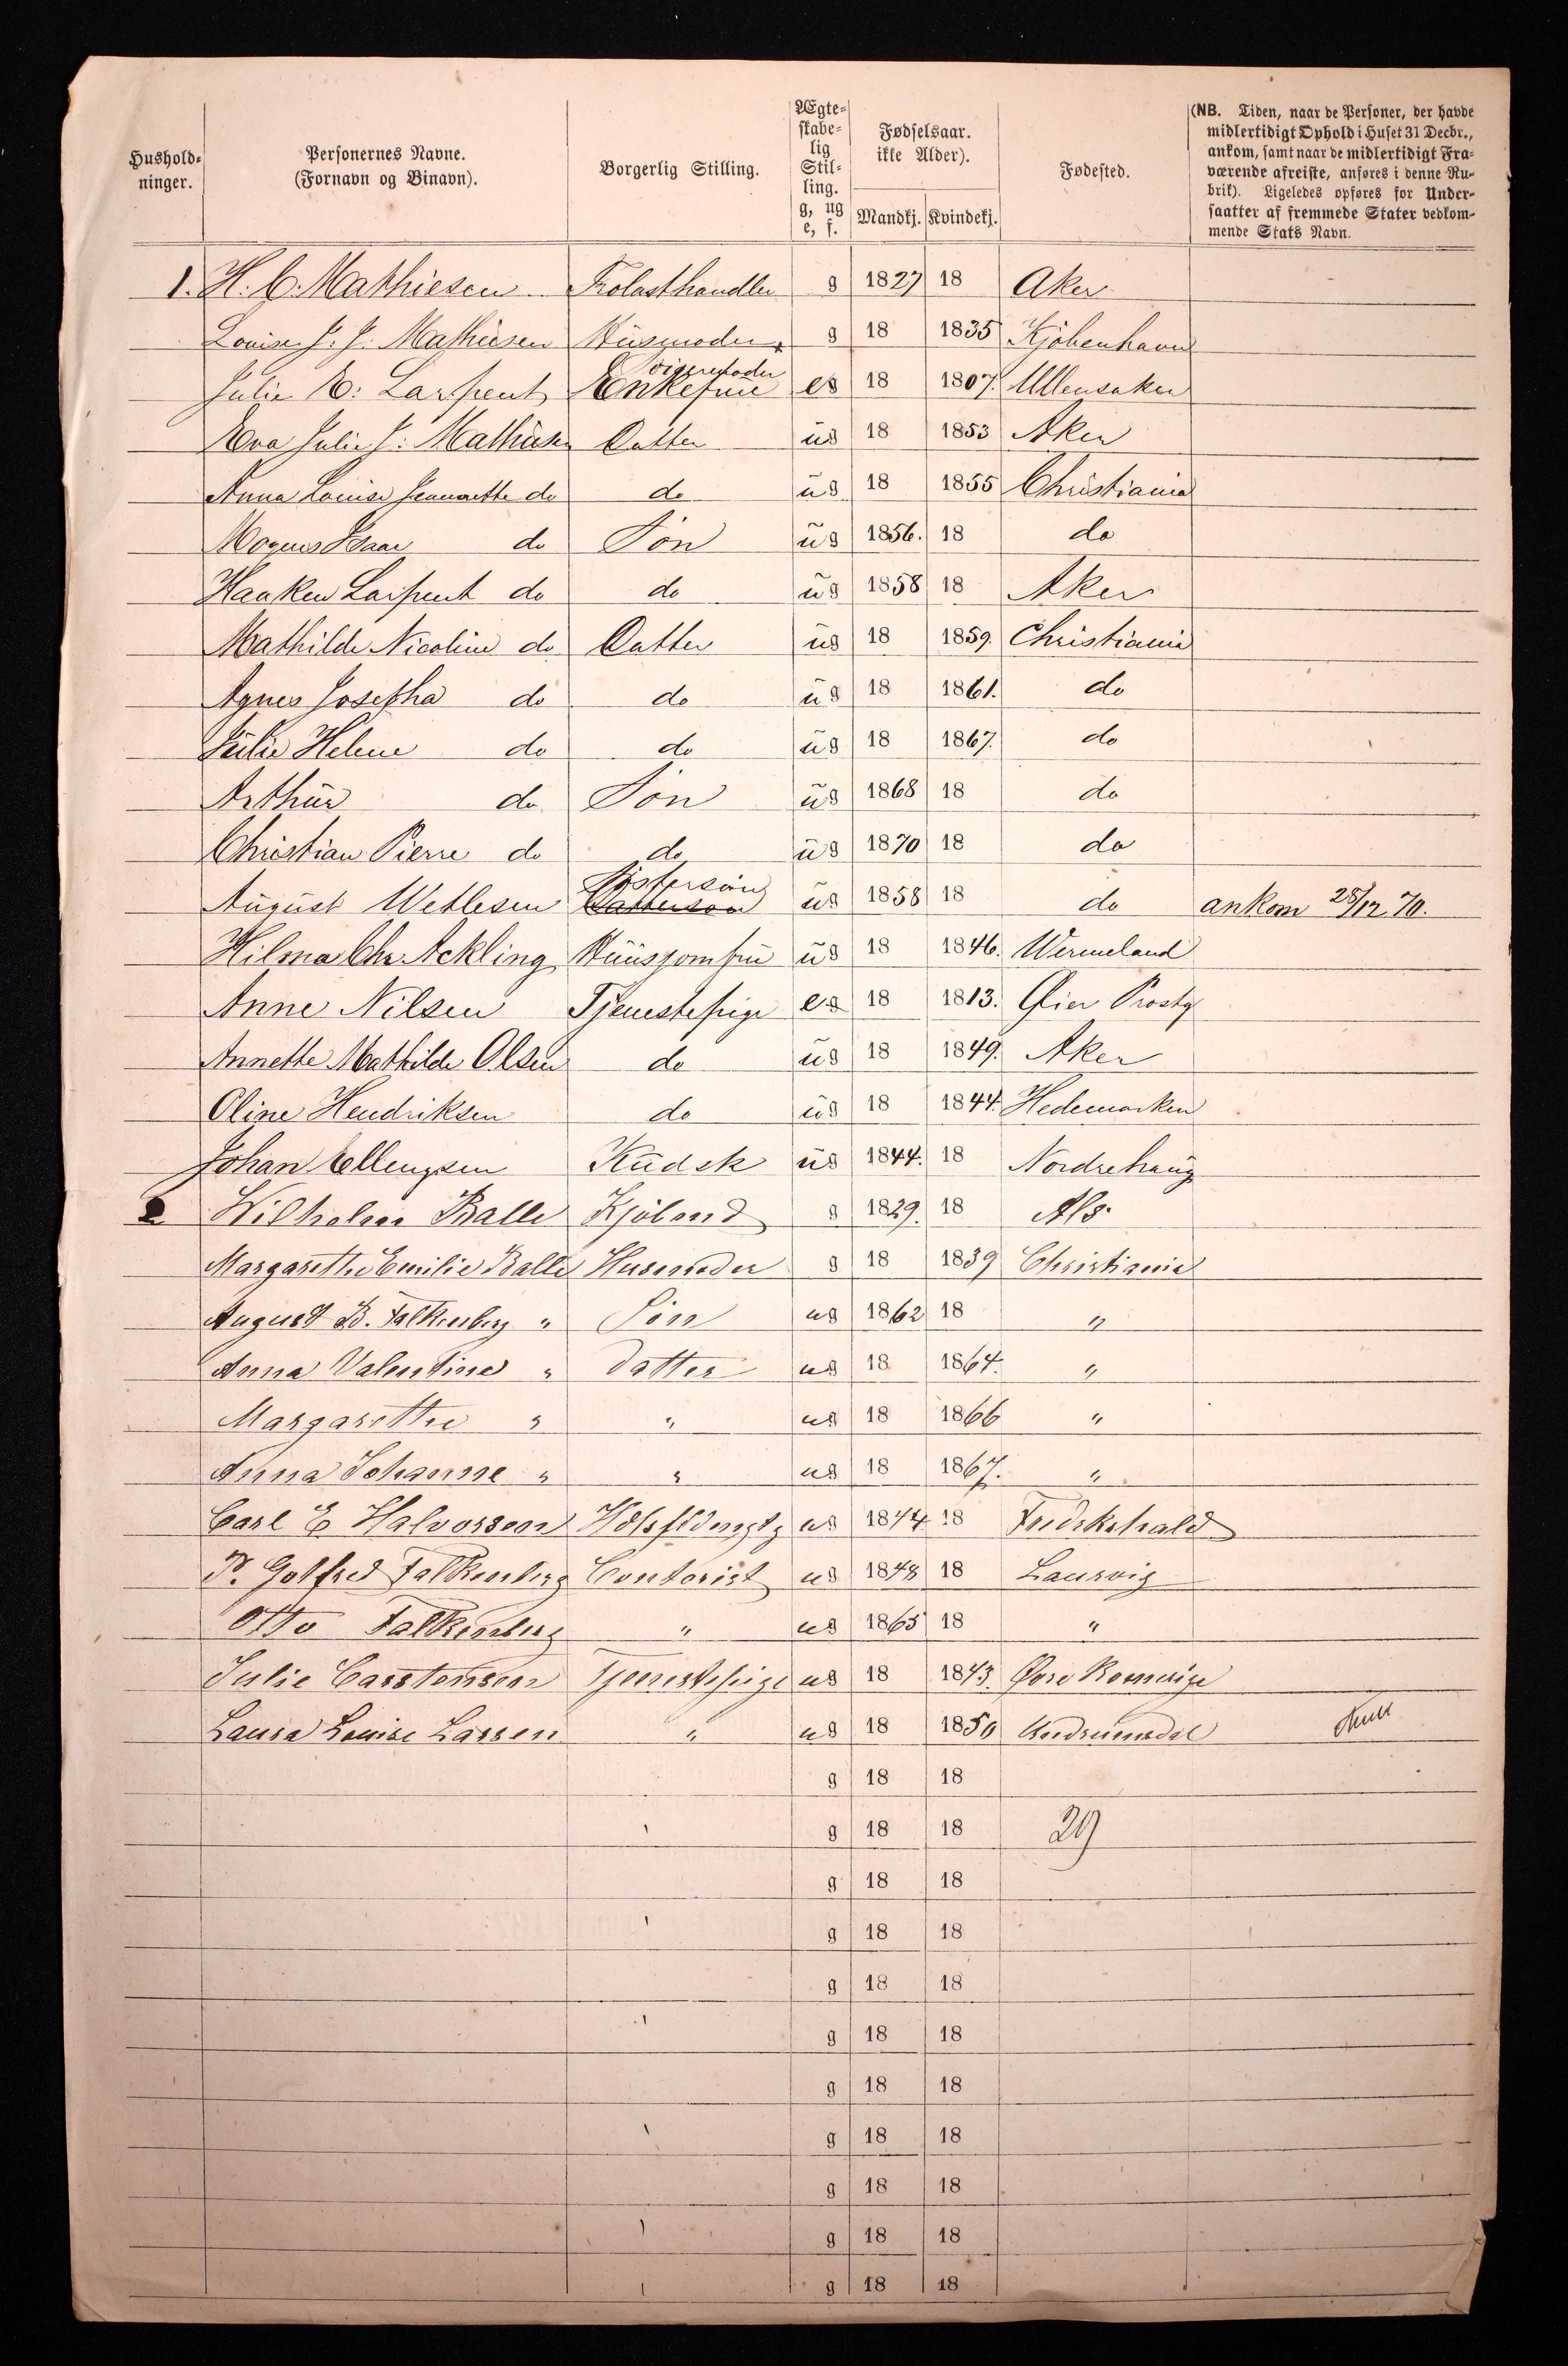 Hushold-
ninger.
Personernes Navne.
(Fornavn og Binavn).
Borgerlig Stilling.
Ægte-
skabe-
lig
Stil-
ling.
g, ug
e, f.
Fødselsaar.
ikke Alder).
Mandkj. Kvindekj.
Fødested.
(NB. Tiden, naar de Personer, der havde
midlertidigt Ophold i Huset 31 Decbr.,
ankom, samt naar de midlertidigt Fra-
værende afreiste, anføres i denne Ru-
brik). Ligeledes opføres for Under-
saatter af fremmede Stater vedkom-
mende Stats Navn.
1. H. C. Mathiesen Trælasthandler g 1827 18 Aker
Louise J. J. Mathiesen Huusmoder g 18 1835 Kjöbenhavn
Svigermoder
Julie E: Larpent Enkefrue eg 18 1807. Ullensaker
Eva Julie J: Mathiesen Datter ug 18 1853 Aker
Anna Louise Jeannette do do ug 18 1855 Christiania
Mogens Isaac do Sön ug 1856. 18 do
Haaken Larpent do do ug 1858 18 Aker
Mathilde Nicoline do Datter ug 18 1859. Christiania
Agnes Josepha do do ug 18 1861. do
Julie Helene do do ug 18 1867. do
Arthur do Sön ug 1868 18 do
Christian Pierre do do ug 1870 18 do
Søstersön
August Wetlesen Dattersøn ug 1858 18 do ankom 28/12 70.
Hilma Chr Ackling Huusjomfru ug 18 1846. Wermeland
Anne Nilsen Tjenestepige eg 18 1813. Øier Prostg
Annette Mathilde Olsen do ug 18 1849. Aker
Oline Hendriksen do ug 18 1844. Hedemarken
Johan Ellengsen Kudsk ug 1844. 18 Nordrehaug
2 Wilhelm Balle Kjöbmd g 1829. 18 Als
Margarethe Emilie Balle Husmoder g 18 1839 Christiania
August B. Falkenberg " Sön ug 1862 18 "
Anna Valentine " Datter ug 18 1864. "
Margarethe " " ug 18 1866 "
Anna Johanne " " ug 18 1867. "
Carl E Halvorsen ug 1844 18 Fredrkshald
P. Gotfred Falkenberg Contorist ug 1848 18 Laurvig
Otto Falkenberg " ug 1865 18 "
Julie Carstensen Tjenestepige ug 18 1843. Øvre Romerige
Laura Louise Larsen " ug 18 1850 Gudrunsdal
g 18 18
g 18 18 29
g 18 18
g 18 18
g 18 18
g 18 18
g 18 18
g 18 18
g 18 18
g 18 18
g 18 18